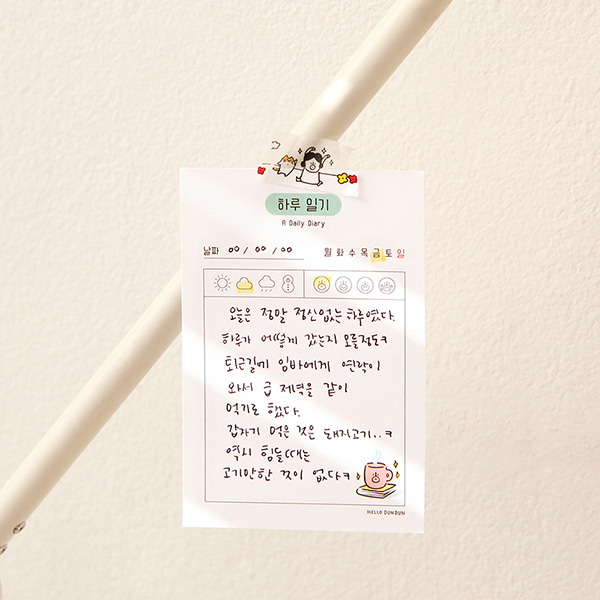 하루 일기
A Daily Diary
날짜 00 / 00 / 00 월 화 수 목 금 토 일
오늘은 정말 정신없는 하루였다.
하루가 어떻게 갔는지 모를정도ㅋ
퇴근길에 임바에게 연락이
와서 급 제력을 같이
먹기로 했다.
갑자기 먹은 것은 돼지고기..ㅋ
역시 힘들때는
고기만한 것이 없다ㅋ
HELLO DUNDUN